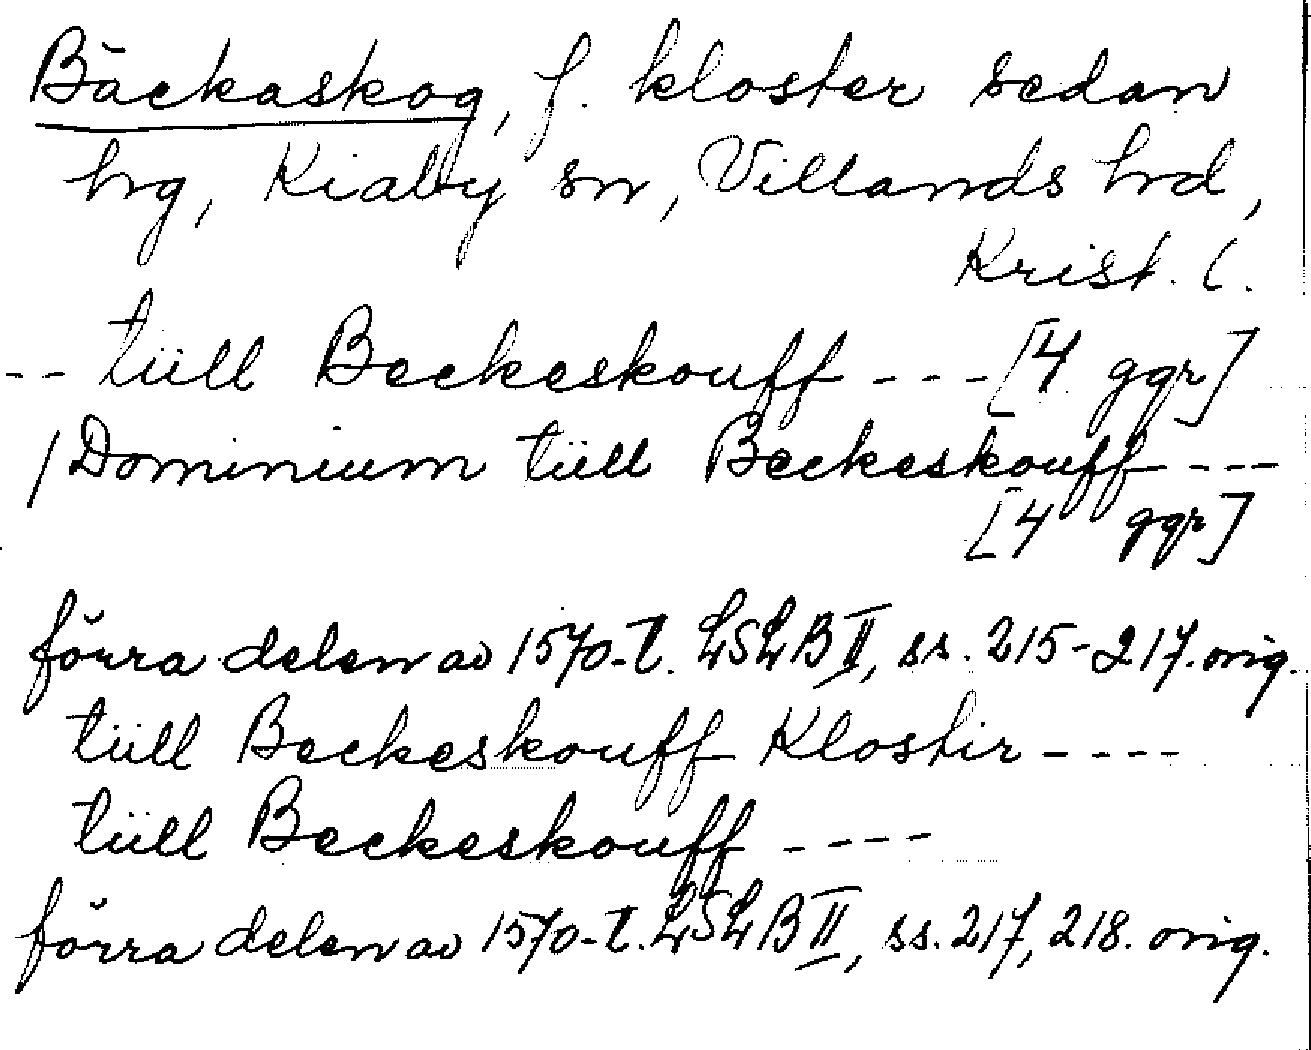 Bäckaskog, f. kloster sedan
hrg, Kiaby sn, Villands hrd,
Krist. l.
-- tüll Beckeskouff ---[4 ggr]
/Dominium tüll Beckeskouff ---
[4 ggr]
förra delen av 1570-t. LSLB II, ss. 215-217. orig.
tüll Beckeskouff Klostir ----
tüll Beckeskouff ----
förra delen av 1570-t. LSLB II, ss. 217, 218. orig.